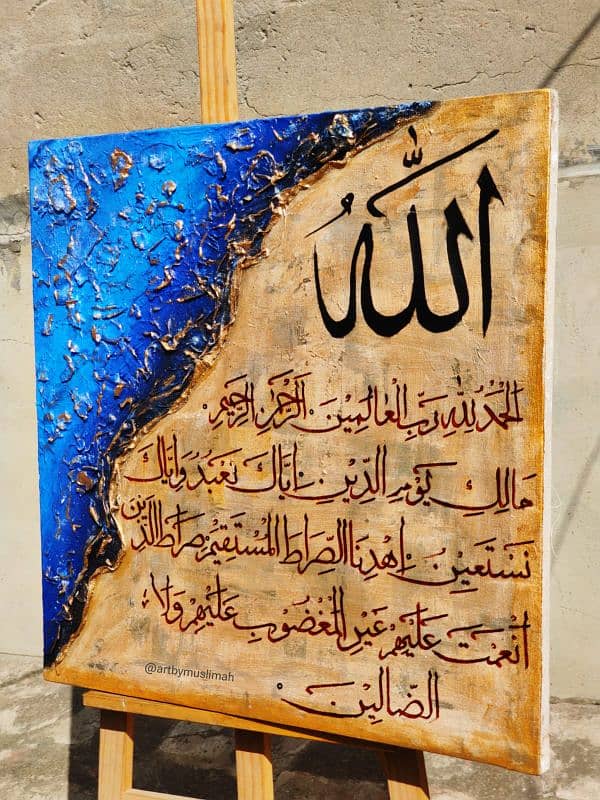 الله
الحمد لله رب العالمين الرحمن الرحيم
مالك يوم الدين إياك نعبد وإياك
نستعين اهدنا الصراط المستقيم صراط الذين
أنعمت عليهم غير المغضوب عليهم ولا
الضالين
@artbymuslimah